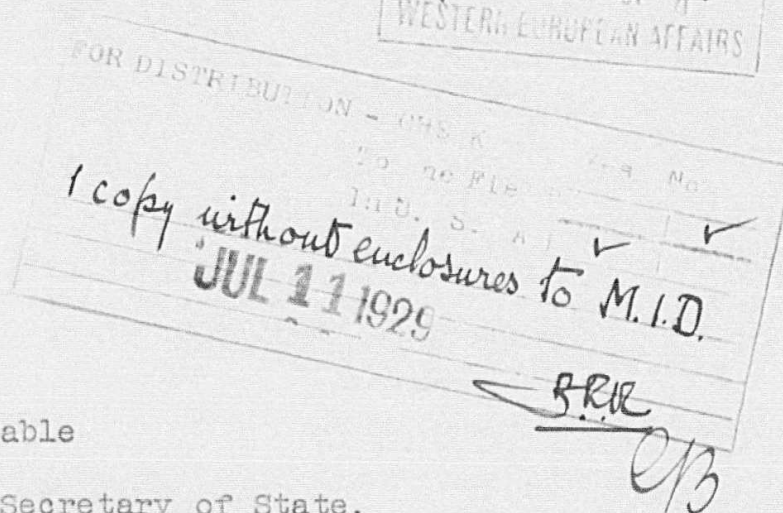 WESTERN EUROPEAN AFFAIRS
FOR DISTRIBUTION - CHECK Yes No
To
In U. S. A
1 copy without enclosures to M.I.D.
JUL 11 1929
able
Secretary of State.